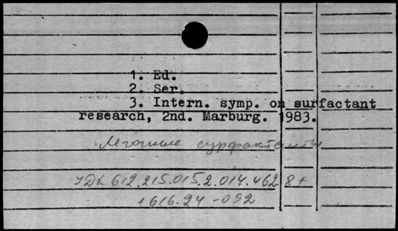 1. Ed.
2. Ser.
3. Intern. symp. on surfactant
research, 2nd. Marburg. 1983.
Легочные сурфактанты
УДК 612.215.015.2.014.462.8+
+616.24-092